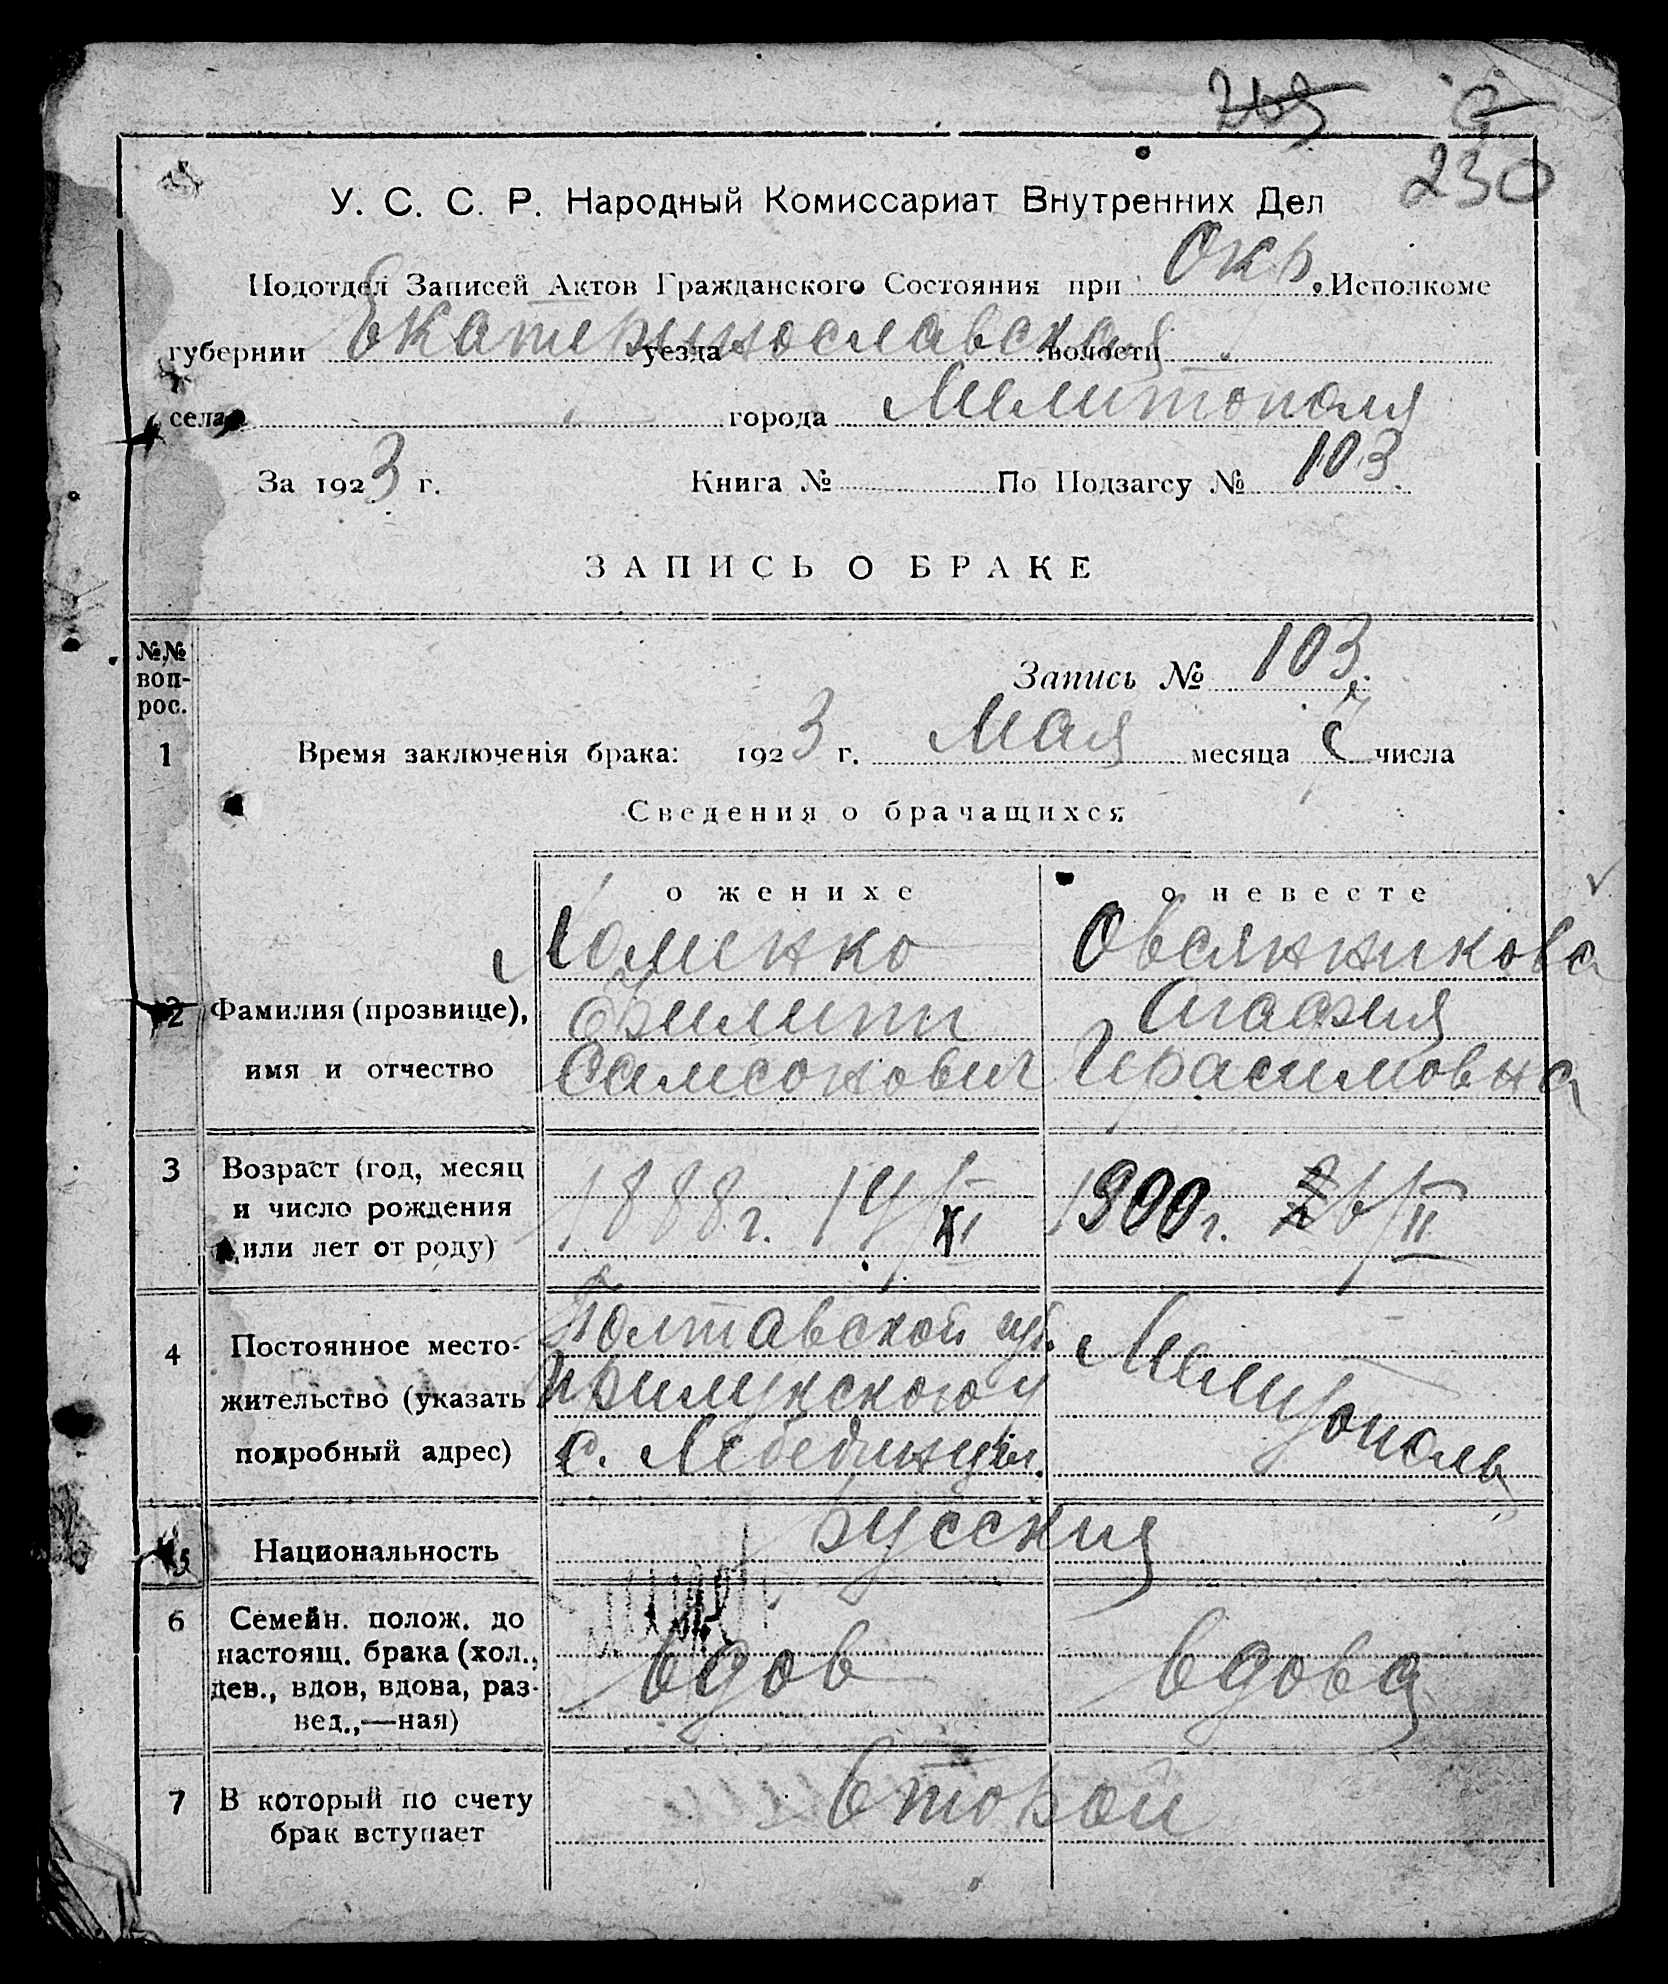 269
230
У. С. С. Р. Народный Комиссариат Внутренних Дел
Подотдел Записей Актов Гражданского Состояния при Окр. Исполкоме
губернии Екатеринославская уезда волости
села города Мелитополя
За 1923 г. Книга № По Подзагсу № 103.
ЗАПИСЬ О БРАКЕ
№№ вопрос.
Запись № 103
1 Время заключенія брака: 1923 г. Мая месяца числа
Сведения о брачащихся
о женихе о невесте
Хоменко Овсянникова
2 Фамилия (прозвище), Филипп Агафия
имя и отчество Самсонович Герасимовна
3 Возраст (год, месяц
и число рождения 1888 г. 14/XI 1900 г. 6/II
или лет от роду)
4 Постоянное место- Полтавской губ. Мелитополь
жительство (указать Прилукского у
подробный адрес) с.
5 Национальность русския
6 Семейн. полож. до
настоящ. брака (хол.,
дев., вдов, вдова, раз- вдов вдова
вед.,—ная)
7 В который по счету второй
брак вступает